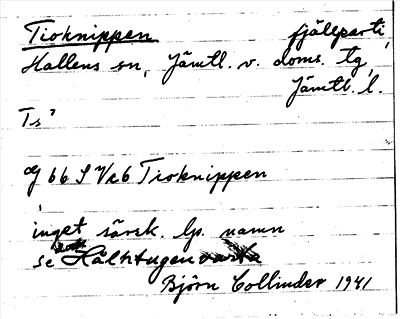 Tioknippen fjällparti,
Hallens sn, Jämtl. v. doms. tg,
Jämtl. l.
Ts?
66 S Tioknippen
inget särsk. lp. namn
se
Björn Collinder 1941